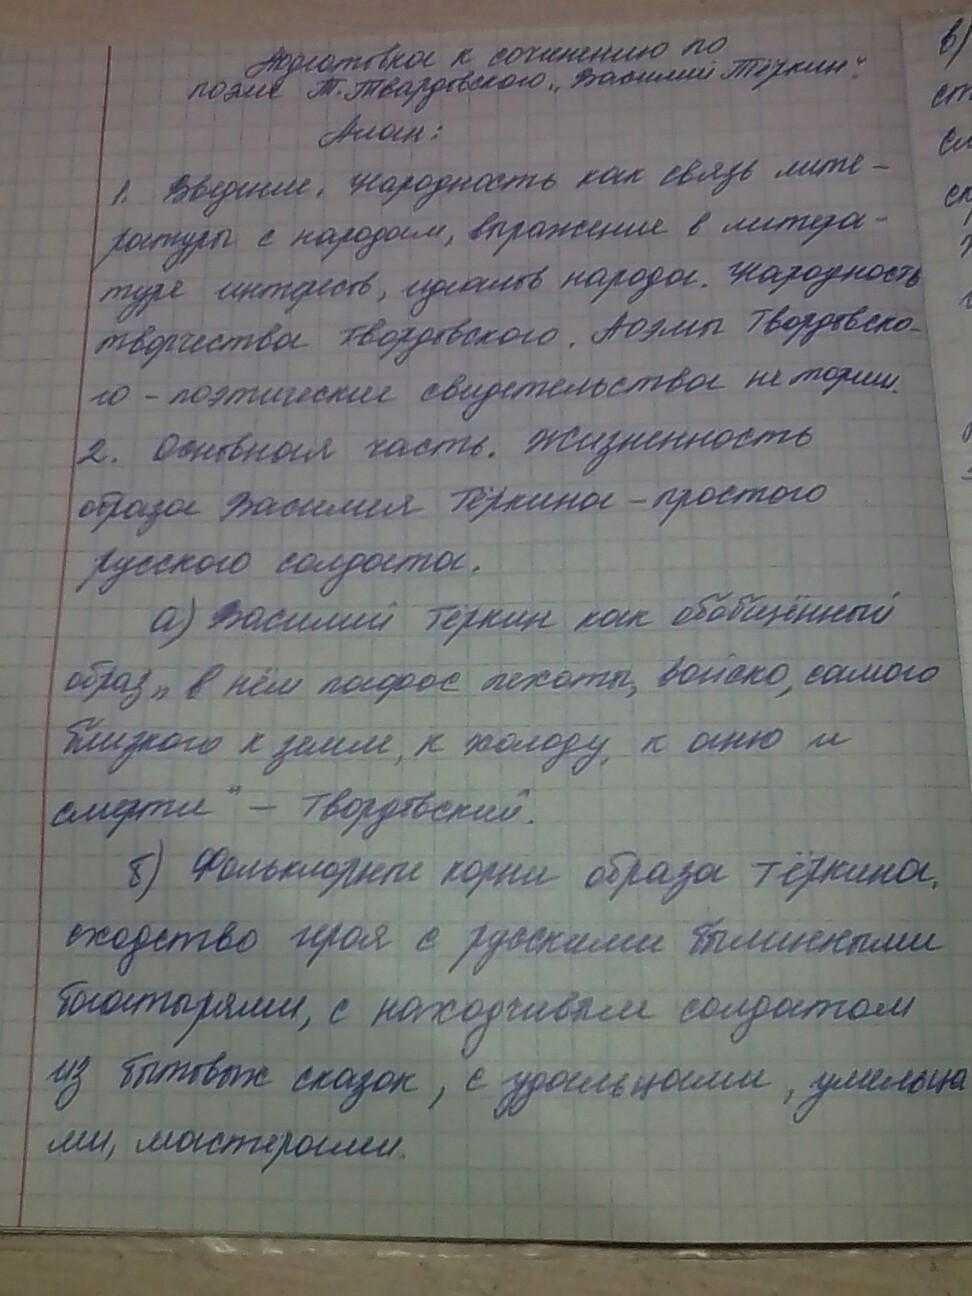 Подготовка к сочинению по
поэме Т. Твардовского „Василий Тёркин".
План:
1. Введение. Народность как связь лите-
ратуры с народом, выражение в литера-
туре интересов, идеалов народа. Народность
творчества Твардовского. Поэмы Твардовско-
го - поэтические свидетельства истории.
2. Основная часть. Жизненность
образа Василия Тёркина - простого
русского солдата.
а) Василий Тёркин как обобщённый
образ „в нём пафос пехоты, войска, самого
близкого к земле, к холоду, к огню и
смерти" - Твардовский.
б) Фольклорные корни образа Тёркина,
сходство героя с русскими былинными
богатырями, с находчивым солдатом
из бытовых сказок, с удальцами, умельца
ми, мастерами.
в)
ст
сл